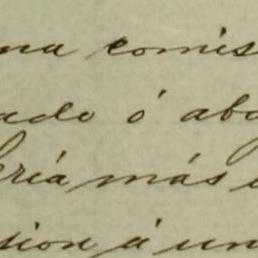 na comis
ado ó abo
ería más
sion á un